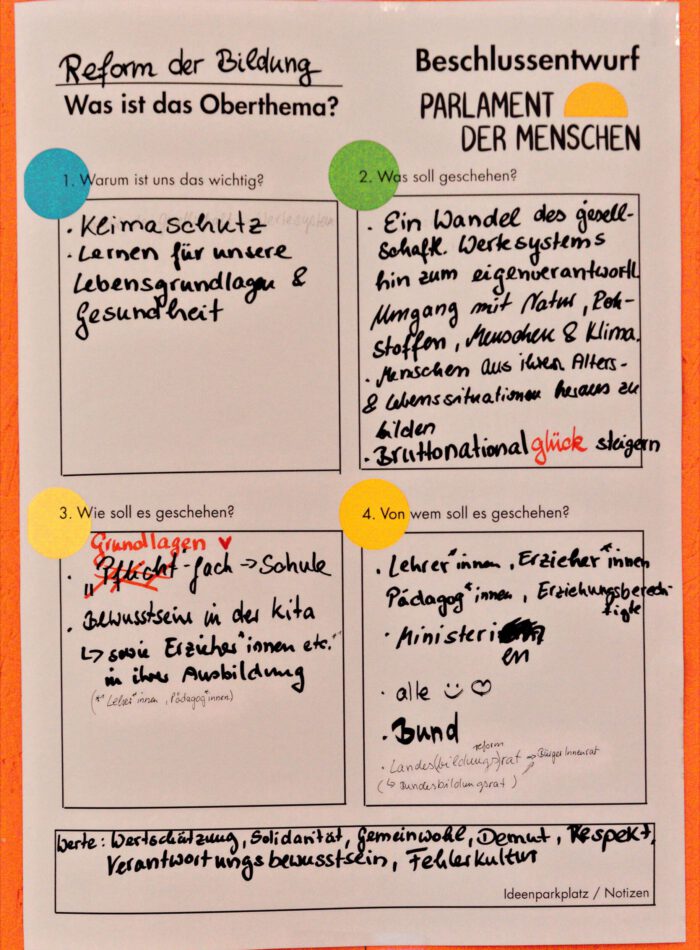 Reform der Bildung
Was ist das Oberthema?
Beschlussentwurf
PARLAMENT
DER MENSCHEN
1. Warum ist uns das wichtig?
· Klimaschutz
· Lernen für unsere
Lebensgrundlagen &
Gesundheit
2. Was soll geschehen?
· Ein Wandel des gesell-
schaftl. Wertesystems
hin zum eigenverantwortl.
Umgang mit Natur, Roh-
stoffen, Menschen & Klima.
· Menschen aus ihren Alters-
& Lebenssituationen heraus zu
bilden
· Bruttonationalglück steigern
3. Wie soll es geschehen?
Grundlagen ♥
· "Pflicht-fach → Schule
· Bewusstsein in der Kita
↳ sowie Erzieher*innen etc.*
in ihrer Ausbildung
(*Lehrer*innen, Pädagog*innen)
4. Von wem soll es geschehen?
· Lehrer*innen, Erzieher*innen
Pädagog*innen, Erziehungsberech-
tigte
· Ministeri
en
· alle ☺ ♡
· Bund
reform
· Landes(bildungs)rat → Bürger Innenrat
(↳ Bundesbildungsrat)
Werte: Wertschätzung, Solidarität, Gemeinwohl, Demut, Respekt,
Verantwortungsbewusstsein, Fehlerkultur
Ideenparkplatz / Notizen